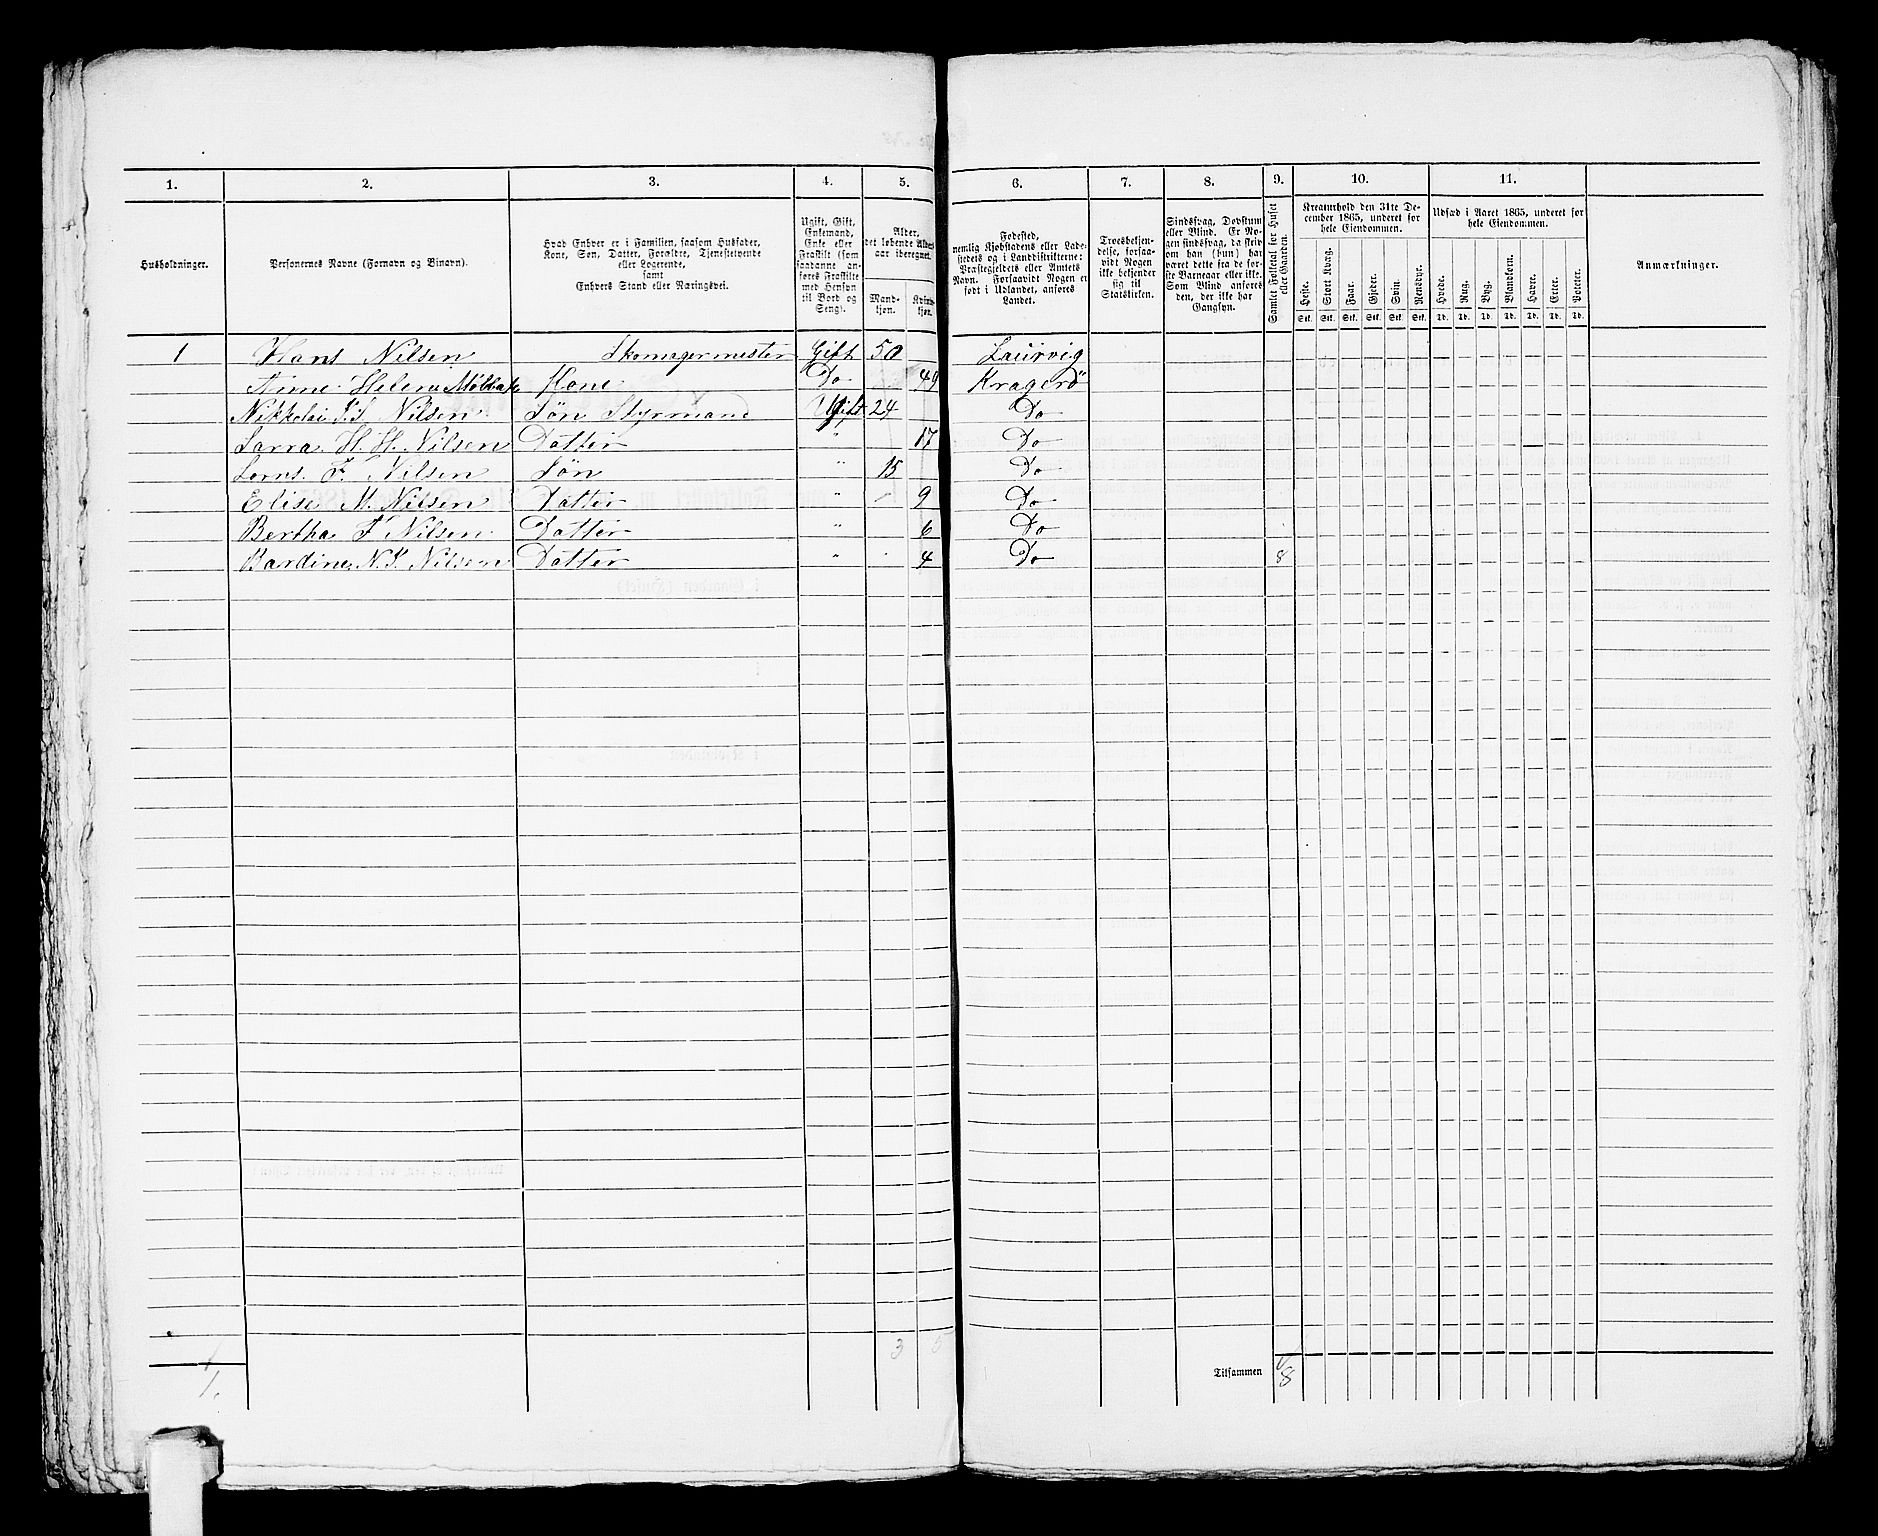 1. 2. 3. 4. 5. 6. 7. 8. 9. 10. 11.
Husholdninger.
Personernes Navne (Fornavn og Binavn).
Hvad Enhver er i Familien, saasom Husfader,
Kone, Søn, Datter, Forældre, Tjenestetyende
eller Logerende,
samt
Enhvers Stand eller Næringsvei.
Ugift, Gift,
Enkemand,
Enke eller
Fraskilt (som
saadanne an-
føres Fraskilte
med Hensyn
til Bord og
Seng).
Alder,
det løbende Alders-
aar iberegnet.
Mand-
kjøn.
Kvinde-
kjøn.
Fødested,
nemlig Kjøbstadens eller Lade-
stedets og i Landdistrikterne:
Præstegjeldets eller Amtets
Navn. Forsaavidt Nogen er
født i Udlandet, anføres
Landet.
Troesbekjen-
delse, forsaa-
vidt Nogen
ikke bekjender
sig til
Statskirken.
Sindssvag, Døvstum
eller Blind. Er No-
gen sindssvag, da skriv
om han (hun) har
været dette fra de før-
ste Barneaar eller ikke.
Som Blind anføres
den, der ikke har
Gangsyn.
Samlet Folketal for Huset
eller Gaarden.
Kreaturhold den 31te De-
cember 1865, underet for
hele Eiendommen.
Heste. Stort Kvæg. Faar. Gjeder. Svin. Rensdyr.
Stk. Stk. Stk. Stk. Stk. Stk.
Udsæd i Aaret 1865, underet for
hele Eiendommen.
Hvede. Rug. Byg. Blandkorn. Havre. Erter. Poteter.
Td. Td. Td. Td. Td. Td. Td.
Anmærkninger.
1 Hans Nilsen Skomagermester Gift 50 Laurvig
Anne Helene Kone Do 49 Kragerö
Nikkolai Nilsen Sön Styrmand Ugift 24 Do
Sarra H. H. Nilsen Datter " 17 Do
F. Nilsen Sön " 15 Do
Elise M. Nilsen Datter " 9 Do
Bertha F Nilsen Datter " 6 Do
Bardine N. Nilsen Datter " 4 Do 8
3 5
Tilsammen 8